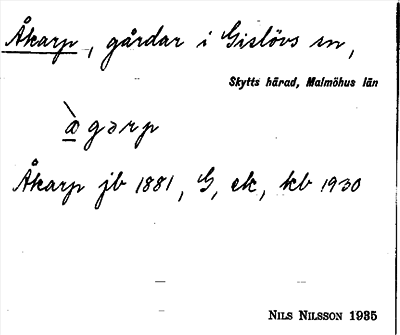 Åkarp, gårdar i Gislövs sn,
Skytts härad, Malmöhus län
àgərp
Åkarp jb 1881, G, ek, kb 1930
NILS NILSSON 1935